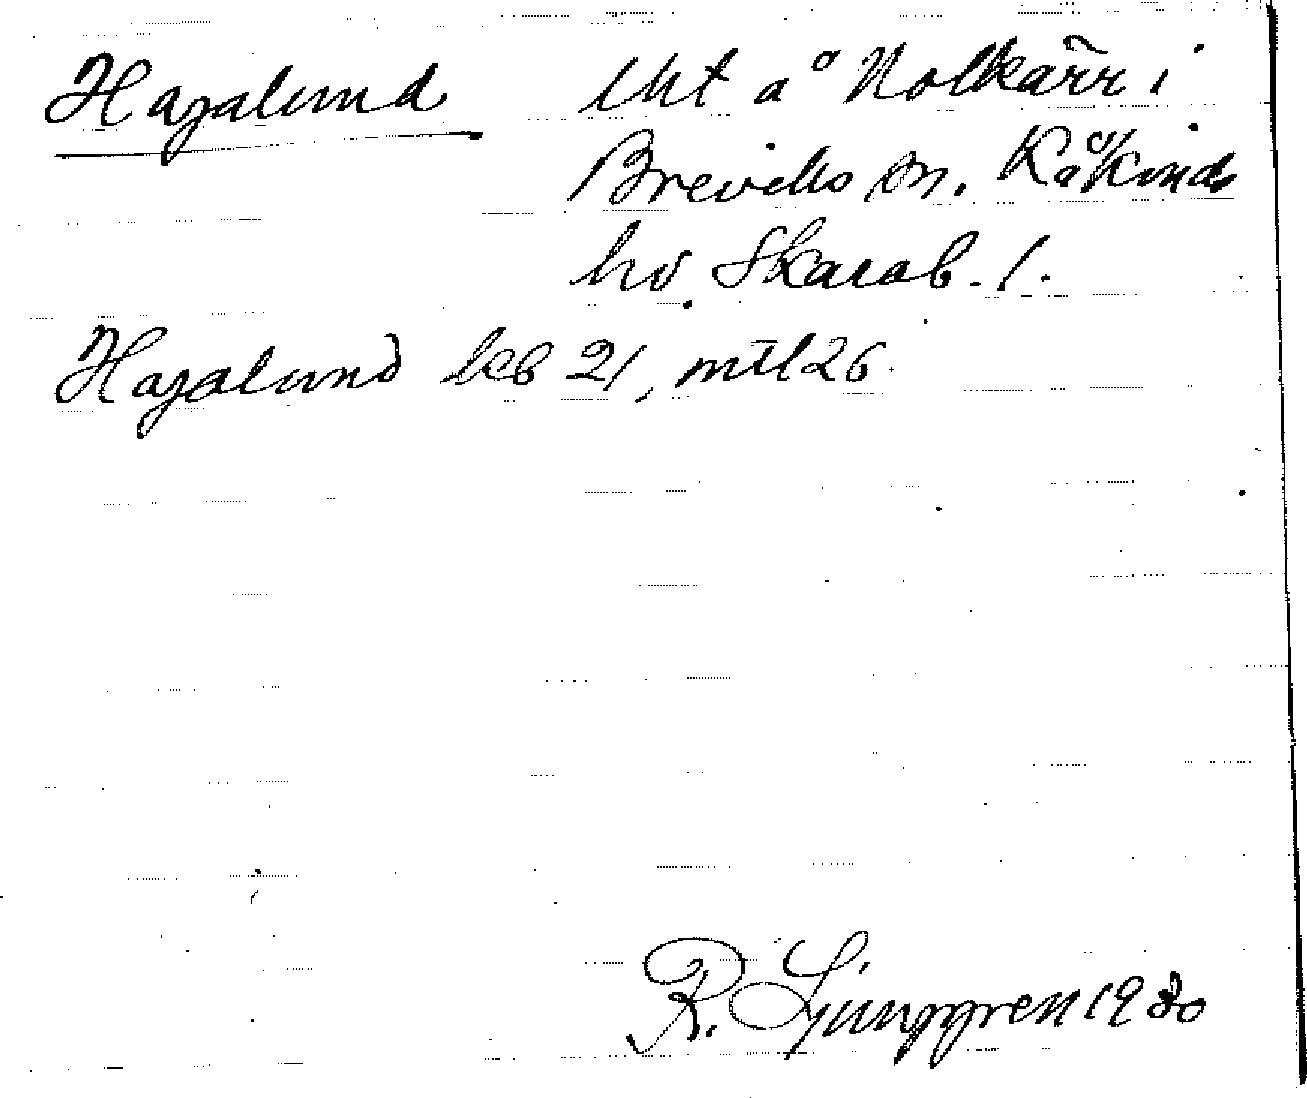 Hagalund lht å Nolkärr i
Breviks sn. Kåkinds
hd. Skarab. l.
Hagalund leb 21, mtl 26.
R. Ljunggren 1930